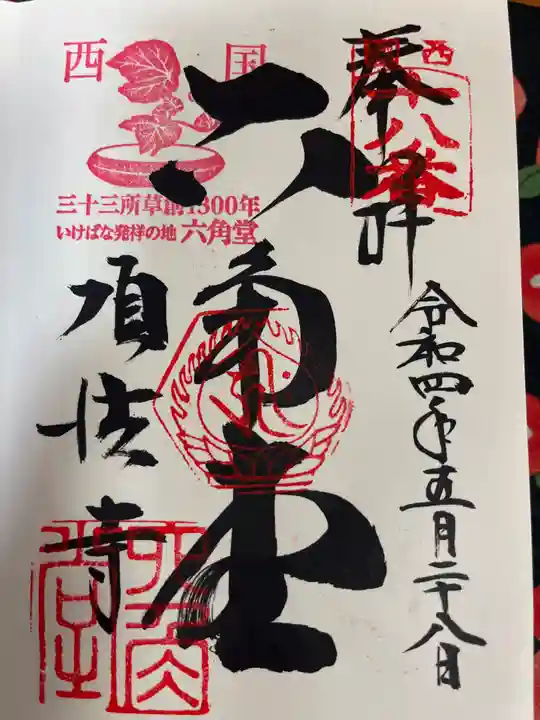 奉拝
西国
十八番
令和四年五月二十八日
六角堂
西国
三十三所草創1300年
いけばな発祥の地 六角堂
頂法寺
六角堂